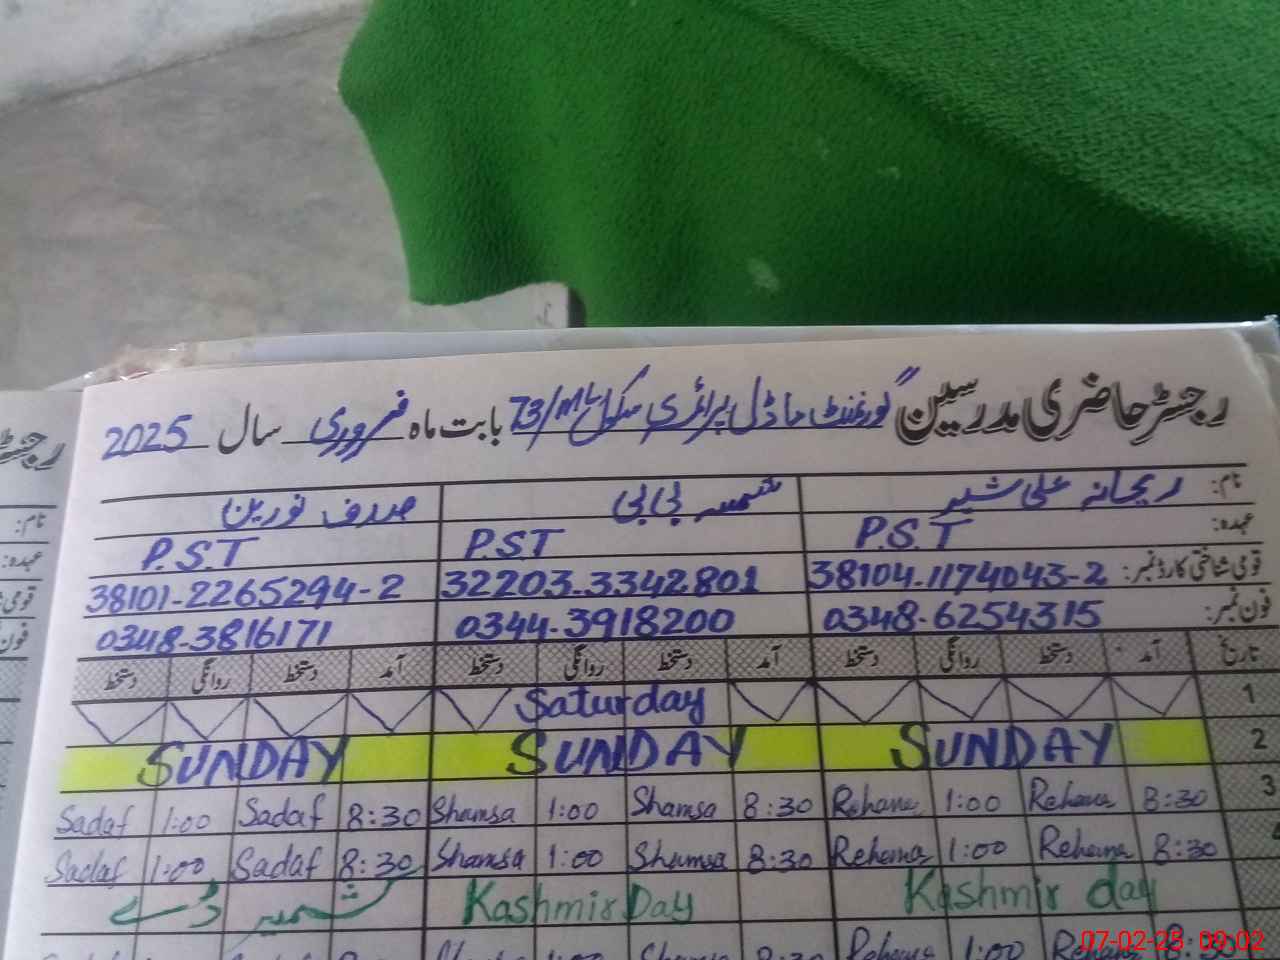 رجسٹر حاضری مدرسین گورنمنٹ ماڈل پرائمری سکول 73/ML بابت ماہ فروری سال 2025
نام: ریحانہ علی شیر شمسہ بی بی صدف نورین
عہدہ: P.S.T P.S.T P.S.T
قومی شناختی کارڈ نمبر: 38104-1174043-2 32203-3342801 38101-2265294-2
فون نمبر: 0348-6254315 0344-3918200 0348-3816171
تاریخ آمد دستخط روانگی دستخط آمد دستخط روانگی دستخط آمد دستخط روانگی دستخط
1 Saturday
2 SUNDAY SUNDAY SUNDAY
3 8:30 Rehana 1:00 Rehana 8:30 Shamsa 1:00 Shamsa 8:30 Sadaf 1:00 Sadaf
4 8:30 Rehana 1:00 Rehana 8:30 Shamsa 1:00 Shamsa 8:30 Sadaf 1:00 Sadaf
Kashmir day Kashmir Day کشمیر ڈے
1:00
07-02-25 09:02